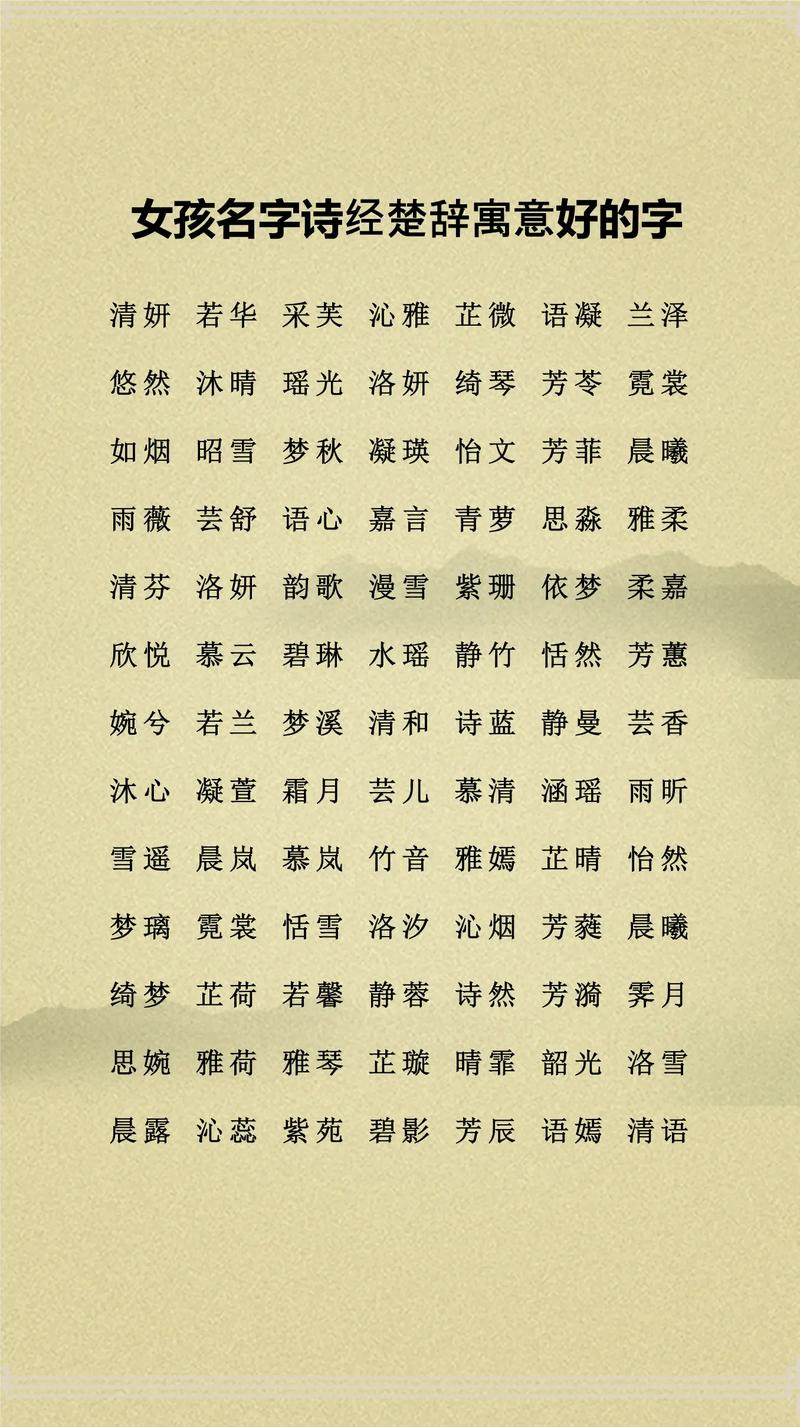 女孩名字诗经楚辞寓意好的字
清妍 若华 采芙 沁雅 芷微 语凝 兰泽
悠然 沐晴 瑶光 洛妍 绮琴 芳苓 霓裳
如烟 昭雪 梦秋 凝瑛 怡文 芳菲 晨曦
雨薇 芸舒 语心 嘉言 青萝 思淼 雅柔
清芬 洛妍 韵歌 漫雪 紫珊 依梦 柔嘉
欣悦 慕云 碧琳 水瑶 静竹 恬然 芳蕙
婉兮 若兰 梦溪 清和 诗蓝 静曼 芸香
沐心 凝萱 霜月 芸儿 慕清 涵瑶 雨昕
雪遥 晨岚 慕岚 竹音 雅嫣 芷晴 怡然
梦璃 霓裳 恬雪 洛汐 沁烟 芳蕤 晨曦
绮梦 芷荷 若馨 静蓉 诗然 芳漪 霁月
思婉 雅荷 雅琴 芷璇 晴霏 韶光 洛雪
晨露 沁蕊 紫苑 碧影 芳辰 语嫣 清语